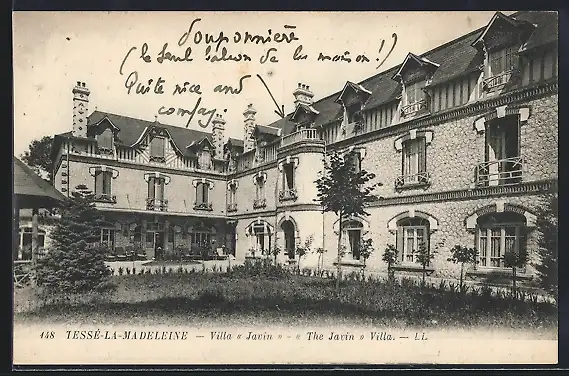 Pouponnière
(le seul salon de la maison!)
Quite nice and
comfy.
148 TESSÉ-LA-MADELEINE — Villa « Javin » - « The Javin » Villa. — LL